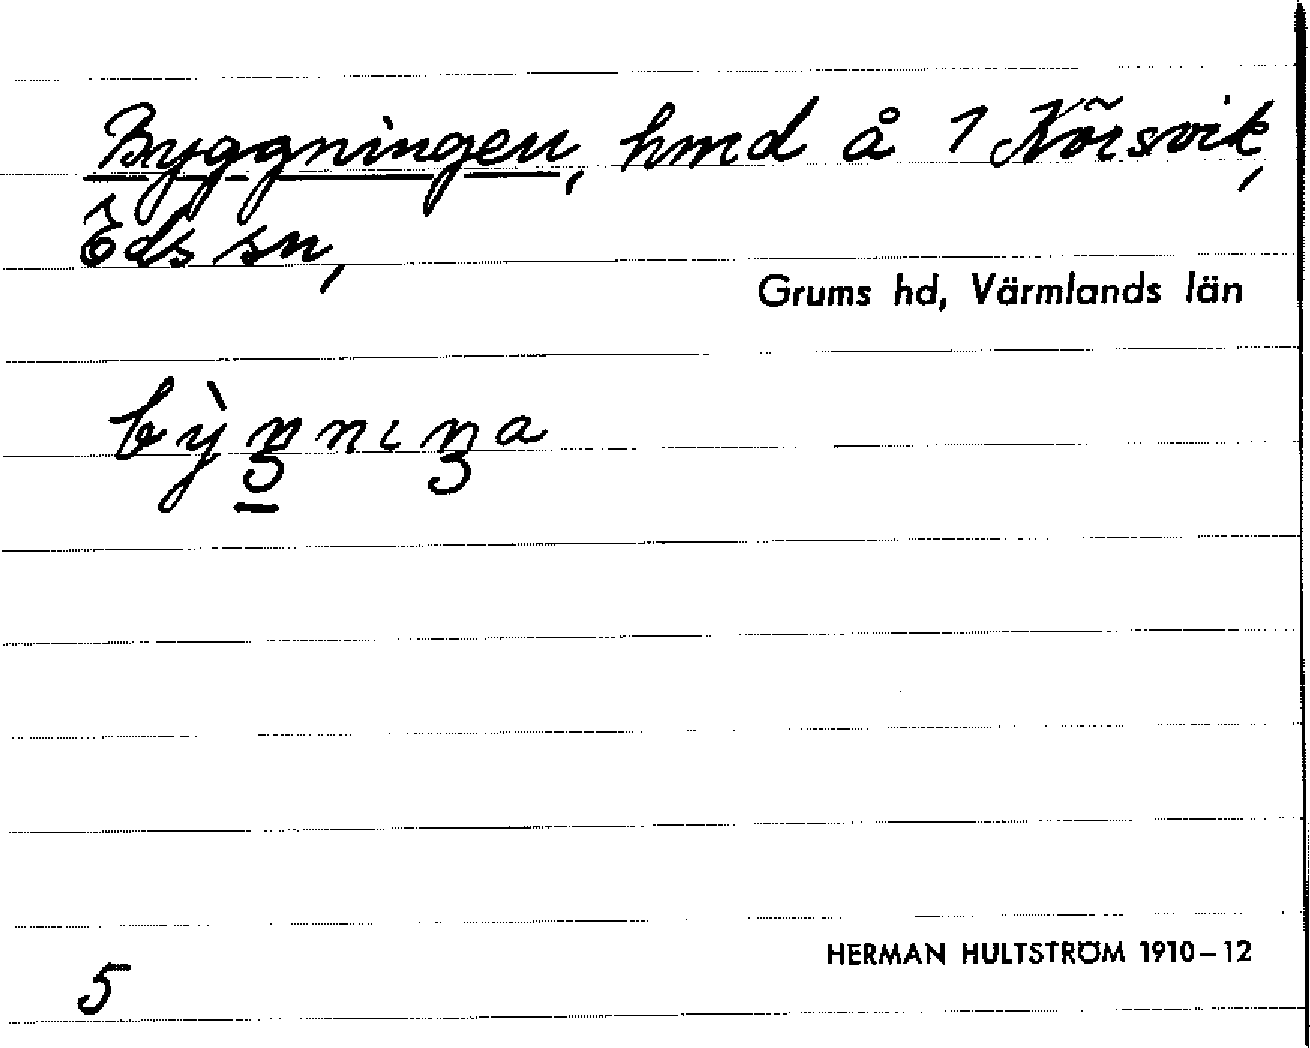 Byggningen, hmd å 1 Körsvik,
Eds sn,
Grums hd, Värmlands län
bỳŋnɩŋa
HERMAN HULTSTRÖM 1910–12
5